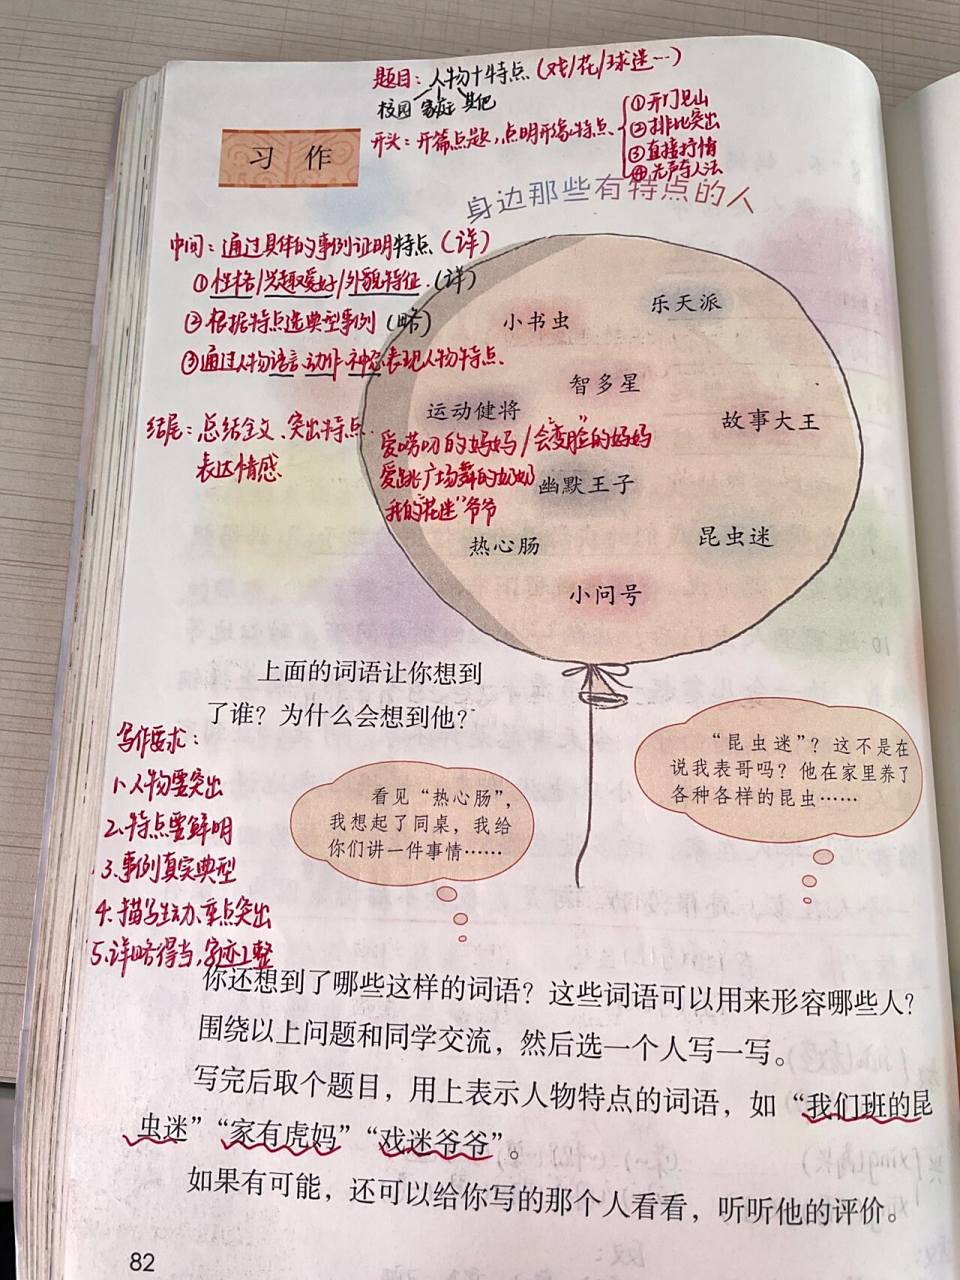 题目：人物+特点（戏/花/球迷…）
校园 家庭 其他
开头：开篇点题，点明开缘特点.
①开门见山
②排比突出
③直接抒情
④先声夺人法
习 作
身边那些有特点的人
中间：通过具体的事例证明特点（详）
①性格/兴趣爱好/外貌特征.（详）
②根据特点选典型事例（略）
③通过人物语言、动作、神态表现人物特点.
结尾：总结全文、突出特点.
表达情感
小书虫
乐天派
智多星
运动健将
故事大王
爱唠叨的妈妈/会“变脸”的妈妈
爱跳广场舞的奶奶
幽默王子
我的“花迷”爷爷
热心肠
昆虫迷
小问号
上面的词语让你想到
了谁？为什么会想到他？
写作要求：
1.人物要突出
2.特点要鲜明
3.事例真实典型
4.描写生动、重点突出
5.详略得当，字迹工整
看见“热心肠”，
我想起了同桌，我给
你们讲一件事情……
“昆虫迷”？这不是在
说我表哥吗？他在家里养了
各种各样的昆虫……
你还想到了哪些这样的词语？这些词语可以用来形容哪些人？
围绕以上问题和同学交流，然后选一个人写一写。
写完后取个题目，用上表示人物特点的词语，如“我们班的昆
虫迷”“家有虎妈”“戏迷爷爷”。
如果有可能，还可以给你写的那个人看看，听听他的评价。
82